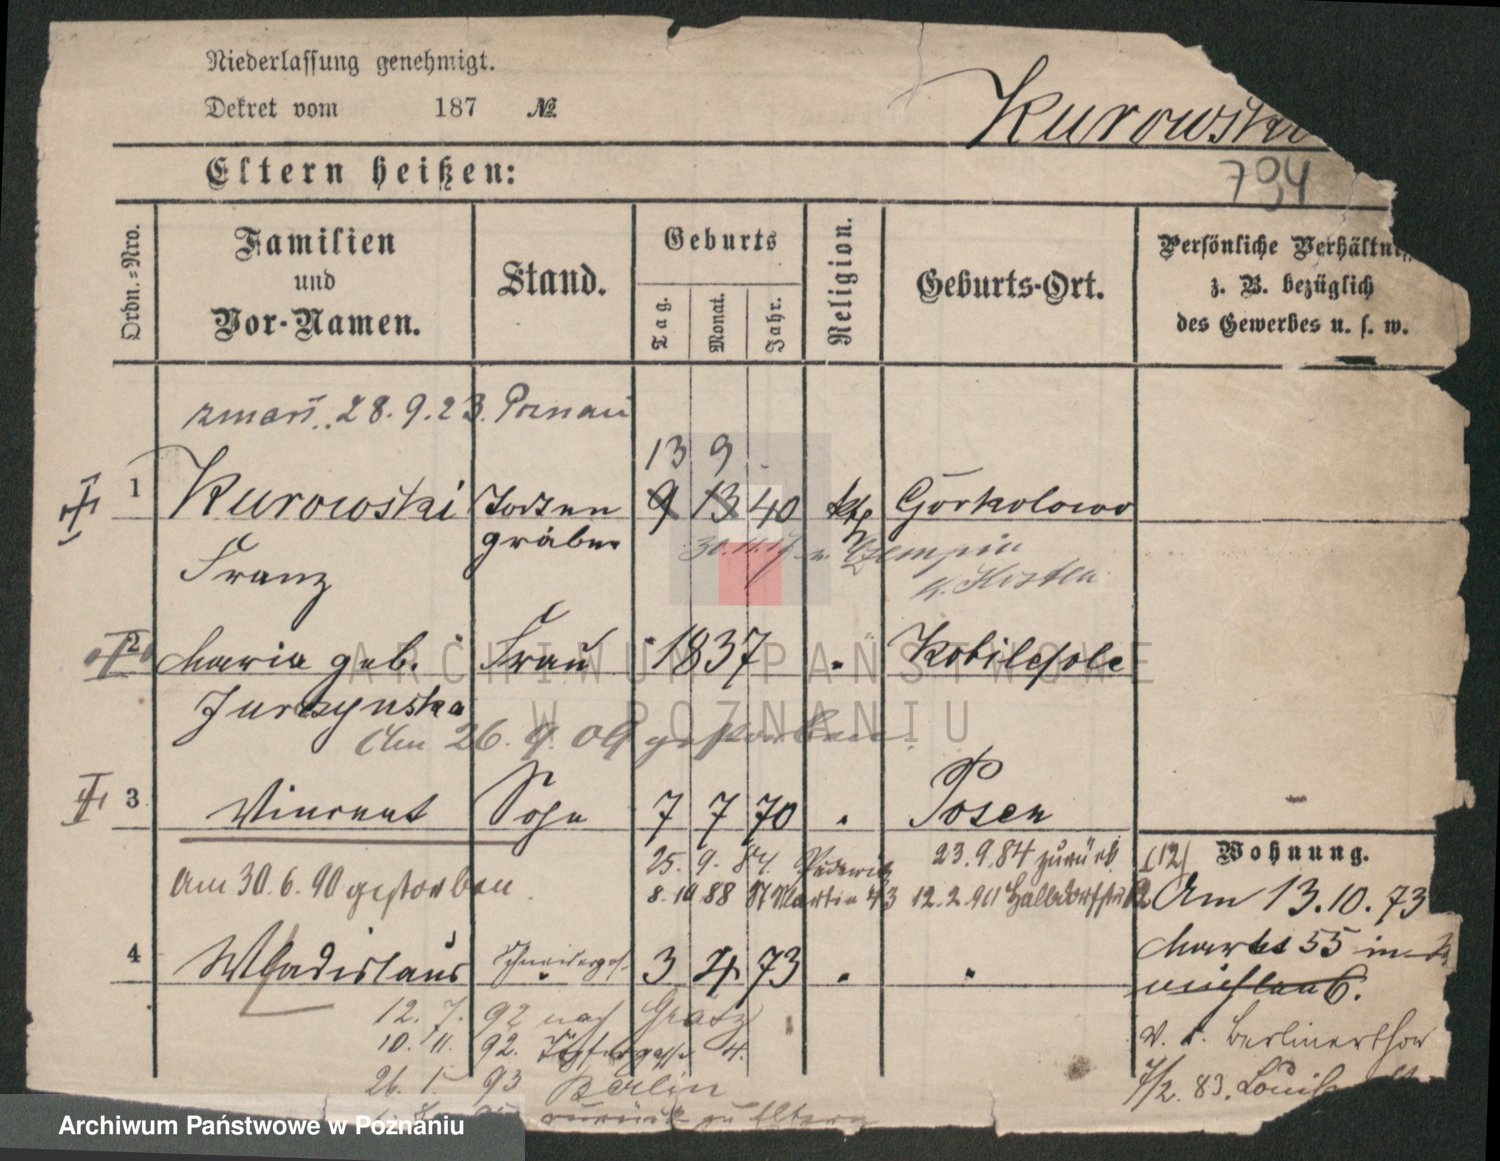 Niederlassung genehmigt.
Dekret vom 187 №
Kurowski
794
Eltern heißen:
Ordn.=Nro.
Familien und Vor-Namen.
Stand.
Geburts
Tag.
Monat.
Jahr.
Religion.
Geburts-Ort.
Persönliche Verhältniss
z. B. bezüglich
des Gewerbes u. s. w.
28. 9. 23.
13 9
1 Kurowski Todten 9 13 40 kth Górkolowo
gräber
Franz
30. 11. 17 Czempin
2 Maria geb. Frau 1837 " Kobilepole
Jurczynska
Am 26. 9. 09 gestorben.
3 Vincent Sohn 7 7 70 " Posen
25. 9. 84. 23. 9. 84 zurück
Am 30. 6. 90 gestorben
8. 10 88 Martin 43 12. 2. Halbdorfstr 12
4 Wladislaus 3 4 73 " "
12. 7. 92 nach Grätz
10. 11. 92. Töpfergasse 4.
26. 1 93 Berlin
zurück zu Eltern
(12) Wohnung.
Am 13. 10. 73
Markt 55
Berlinerthor
7/2. 83.
ARCHIWUM PAŃSTWOWE
W POZNANIU
Archiwum Państwowe w Poznaniu